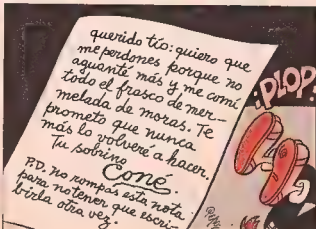 querido tío: quiero que
me perdones porque no
aguante más y me comí
todo el frasco de mer-
melada de moras. Te
prometo que nunca
más lo volveré a hacer.
Tu sobrino
Coné.
P.D. no rompas esta nota
para no tener que escri-
birla otra vez.
¡PLOP!